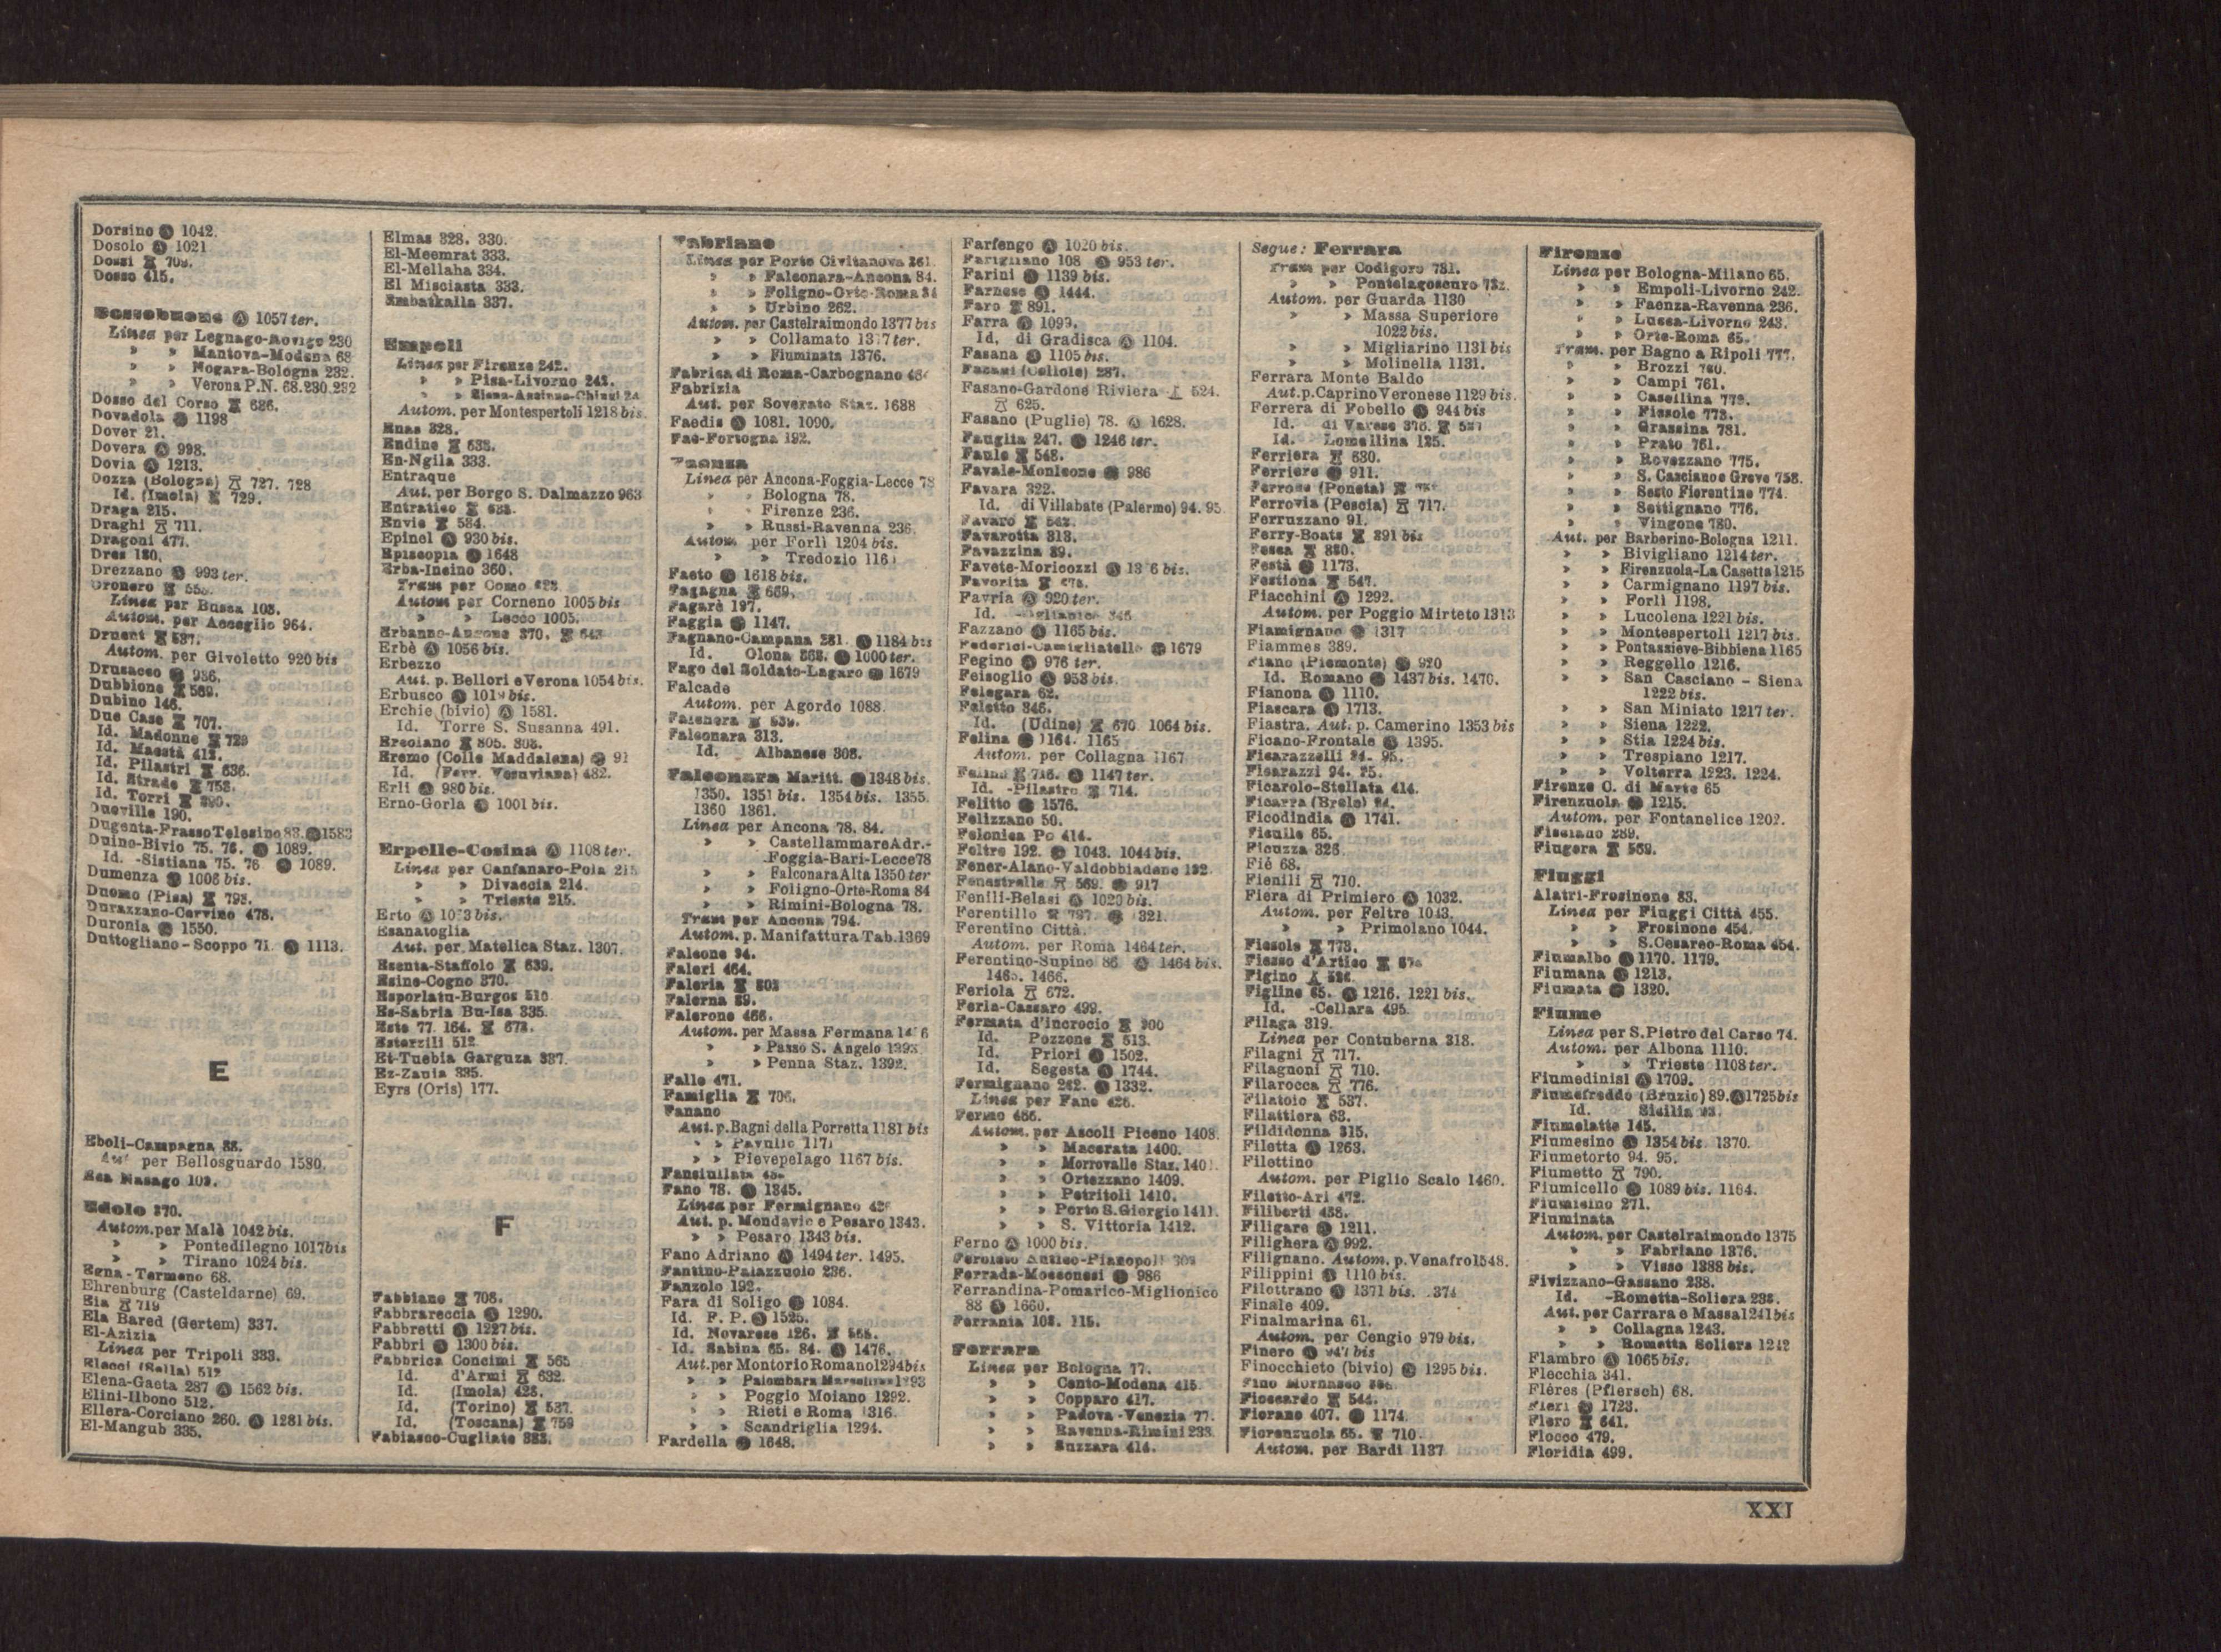 Dorsino Ⓐ 1042.
Dosolo Ⓐ 1021
Dossi
Dosso 415.
Dossobuono Ⓐ 1057 ter.
Linea per Legnago-Rovigo 230
» » Mantova-Modena 68
» » Nogara-Bologna 232.
» » Verona P.N. 68.230.232
Dosso del Corso 686.
Dovadola Ⓐ 1198
Dover 21.
Dovera Ⓐ 998.
Dovia Ⓐ 1213.
Dozza (Bologna) 727. 728
Id. (Imola) 729.
Draga 215.
Draghi 711.
Dragoni 477.
Dres 180.
Drezzano Ⓐ 993 ter.
Dronero
Linea per Busca 108.
Autom. per Acceglio 964.
Druent 587.
Autom. per Givoletto 920 bis
Drusacco Ⓐ 936.
Dubbione 569.
Dubino 146.
Due Case 707.
Id. Madonne 729
Id. Maestà 412.
Id. Pilastri 636.
Id. Strade 753.
Id. Torri
Dueville 190.
Dugenta-Frasso Telesino 83. Ⓐ 1582
Duino-Bivio 75. 76. Ⓐ 1089.
Id. -Sistiana 75. 76 Ⓐ 1089.
Dumenza Ⓐ 1006 bis.
Duomo (Pisa) 793.
Durazzano-Cervino 478.
Duronia Ⓐ 1550.
Duttogliano-Scoppo 71. Ⓐ 1113.
E
Eboli-Campagna 88.
Aut. per Bellosguardo 1580.
Eca Nasago 102.
Edolo 370.
Autom. per Malè 1042 bis.
» » Pontedilegno 1017 bis
» » Tirano 1024 bis.
Egna-Termeno 68.
Ehrenburg (Casteldarne) 69.
Eia 719
Ela Bared (Gertem) 337.
El-Azizia
Linea per Tripoli 333.
Elacci (Sella) 512
Elena-Gaeta 287 Ⓐ 1562 bis.
Elini-Ilbono 512.
Ellera-Corciano 260. Ⓐ 1281 bis.
El-Mangub 335.
Elmas 328. 330.
El-Meemrat 333.
El-Mellaha 334.
El Misciasta 333.
Embatkalla 337.
Empoli
Linea per Firenze 242.
» » Pisa-Livorno 242.
» » Siena-Asciano-Chiusi
Autom. per Montespertoli 1218 bis.
Enas 328.
Endine 638.
En-Ngila 333.
Entraque
Aut. per Borgo S. Dalmazzo 963
Entratico 638.
Envie 584.
Epinel Ⓐ 930 bis.
Episcopia Ⓐ 1648
Erba-Incino 360.
Tram per Como 628.
Autom per Corneno 1005 bis
» » Lecco 1005.
Erbanno-Angone 370. 643
Erbè Ⓐ 1056 bis.
Erbezzo
Aut. p. Bellori e Verona 1054 bis.
Erbusco Ⓐ 1019 bis.
Erchie (bivio) Ⓐ 1581.
Id. Torre S. Susanna 491.
Ercolano 805. 808.
Eremo (Colle Maddalena) Ⓐ 91
Id. (Ferr. Vesuviana) 482.
Erli Ⓐ 980 bis.
Erno-Gorla Ⓐ 1001 bis.
Erpelle-Cosina Ⓐ 1108 ter.
Linea per Canfanaro-Pola 215
» » Divaccia 214.
» » Trieste 215.
Erto Ⓐ 1073 bis.
Esanatoglia
Aut. per Matelica Staz. 1307.
Esenta-Staffolo 639.
Esine-Cogno 370.
Esporlatu-Burgos 510
Es-Sabria Bu-Isa 335.
Este 77. 164. 673.
Esterzili 512
Et-Tuebia Garguza 337.
Ez-Zauia 335.
Eyrs (Oris) 177.
F
Fabbiano 708.
Fabbrareccia Ⓐ 1290.
Fabbretti Ⓐ 1227 bis.
Fabbri Ⓐ 1300 bis.
Fabbrica Concimi 565
Id. d'Armi 632.
Id. (Imola) 428.
Id. (Torino) 537.
Id. (Toscana) 759
Fabiasco-Cugliate 383.
Fabriano
Linea per Porto Civitanova 261.
» » Falconara-Ancona 84.
» » Foligno-Orte-Roma 84
» » Urbino 262.
Autom. per Castelraimondo 1377 bis
» » Collamato 1377 ter.
» » Fiuminata 1376.
Fabrica di Roma-Carbognano
Fabrizia
Aut. per Soverato Staz. 1688
Faedis Ⓐ 1081. 1090.
Fae-Fortogna 192.
Faenza
Linea per Ancona-Foggia-Lecce 78
» » Bologna 78.
» » Firenze 236.
» » Russi-Ravenna 236.
Autom. per Forlì 1204 bis.
» » Tredozio
Faeto Ⓐ 1618 bis.
Fagagna 669.
Fagarè 197.
Faggia Ⓐ 1147.
Fagnano-Campana 281. Ⓐ 1184 bis
Id. Olona 368. Ⓐ 1000 ter.
Fago del Soldato-Lagaro Ⓐ 1679
Falcade
Autom. per Agordo 1088.
Falchera
Falconara 313.
Id. Albanese 308.
Falconara Maritt. Ⓐ 1348 bis.
1350. 1351 bis. 1354 bis. 1355.
1360 1361.
Linea per Ancona 78. 84.
» » Castellammare Adr.-
Foggia-Bari-Lecce 78
» » Falconara Alta 1350 ter
» » Foligno-Orte-Roma 84
» » Rimini-Bologna 78.
Tram per Ancona 794.
Autom. p. Manifattura Tab. 1369
Falcone 94.
Faleri 464.
Faleria 803
Falerna 89.
Falerone 466.
Autom. per Massa Fermana
» » Passo S. Angelo 1393.
» » Penna Staz. 1392.
Fallo 471.
Famiglia 706.
Fanano
Aut. p. Bagni della Porretta 1181 bis
» » Pavullo
» » Pievepelago 1167 bis.
Fansiullata
Fano 78. Ⓐ 1345.
Linea per Fermignano
Aut. p. Mondavio e Pesaro 1343.
» » Pesaro 1343 bis.
Fano Adriano Ⓐ 1494 ter. 1495.
Fantino-Palazzuolo 236.
Fanzolo 192.
Fara di Soligo Ⓐ 1084.
Id. F. P. Ⓐ 1525.
Id. Novarese 126. 565.
Id. Sabina 65. 84. Ⓐ 1476.
Aut. per Montorio Romano 1294 bis
» » Palombara
» » Poggio Moiano 1292.
» » Rieti e Roma 1316.
» » Scandriglia 1294.
Fardella Ⓐ 1648.
Farfengo Ⓐ 1020 bis.
Farigliano 108 Ⓐ 953 ter.
Farini Ⓐ 1139 bis.
Farnese Ⓐ 1444.
Faro 891.
Farra Ⓐ 1099.
Id. di Gradisca Ⓐ 1104.
Fasana Ⓐ 1105 bis.
Fasani (Cellole) 287.
Fasano-Gardone Riviera 524.
625.
Fasano (Puglie) 78. Ⓐ 1628.
Fauglia 247. Ⓐ 1246 ter.
Faule 548.
Favale-Monleone Ⓐ 986
Favara 322.
Id. di Villabate (Palermo) 94. 95
Favaro
Favarotta 313.
Favazzina 89.
Favete-Moricozzi Ⓐ bis.
Favorita
Favria Ⓐ 920 ter.
Id.
Fazzano Ⓐ 1165 bis.
Federici-Camigliatello Ⓐ 1679
Fegino Ⓐ 976 ter.
Feisoglio Ⓐ 953 bis.
Felegara 62.
Feletto 346.
Id. (Udine) 670 1064 bis.
Felina Ⓐ 1164. 1165
Autom. per Collagna 1167
Felina 716. Ⓐ 1147 ter.
Id. -Pilastro 714.
Felitto Ⓐ 1576.
Felizzano 50.
Felonica Po 414.
Feltre 192. Ⓐ 1043. 1044 bis.
Fener-Alano-Valdobbiadene 192
Fenestrelle 569. Ⓐ 917
Fenili-Belasi Ⓐ 1020 bis.
Ferentillo 797. Ⓐ 1321.
Ferentino Città.
Autom. per Roma 1464 ter.
Ferentino-Supino 86 Ⓐ 1464 bis.
1465. 1466.
Feriola 672.
Ferla-Cassaro 499.
Fermata d'incrocio 900
Id. Pozzone 513.
Id. Priori Ⓐ 1502.
Id. Segesta Ⓐ 1744.
Fermignano 262. Ⓐ 1332.
Linea per Fano 426.
Fermo 466.
Autom. per Ascoli Piceno 1408.
» » Macerata 1400.
» » Morrovalle Staz.
» » Ortezzano 1409.
» » Petritoli 1410.
» » Porto S. Giorgio 1411.
» » S. Vittoria 1412.
Ferno Ⓐ 1000 bis.
Feroleto Antico-Pianopoli
Ferrada-Moconesi Ⓐ 986
Ferrandina-Pomarico-Miglionico
88 Ⓐ 1660.
Ferrania 108. 115.
Ferrara
Linea per Bologna 77.
» » Cento-Modena 415
» » Copparo 417.
» » Padova-Venezia 77.
» » Ravenna-Rimini 233
» » Suzzara 414.
Segue: Ferrara
Tram per Codigoro 731.
» » Pontelagoscuro 732.
Autom. per Guarda 1130
» » Massa Superiore
1022 bis.
» » Migliarino 1131 bis
» » Molinella 1131.
Ferrara Monte Baldo
Aut. p. Caprino Veronese 1129 bis.
Ferrera di Fobello Ⓐ 944 bis
Id. di Varese 376.
Id. Lomellina 125.
Ferriera 630.
Ferriere Ⓐ 911.
Ferrone (Poneta)
Ferrovia (Pescia) 717.
Ferruzzano 91.
Ferry-Boats 891 bis
Fesca 880.
Festà Ⓐ 1173.
Festiona 547.
Fiacchini Ⓐ 1292.
Autom. per Poggio Mirteto 1313
Fiamignano Ⓐ 1317
Fiammes 389.
Fiano (Piemonte) Ⓐ 920
Id. Romano Ⓐ 1437 bis. 1470.
Fianona Ⓐ 1110.
Fiascara Ⓐ 1713.
Fiastra. Aut. p. Camerino 1353 bis
Ficano-Frontale Ⓐ 1395.
Ficarazzelli 94. 95.
Ficarazzi 94. 95.
Ficarolo-Stellata 414.
Ficarra (Brolo) 94.
Ficodindia Ⓐ 1741.
Ficulle 65.
Ficuzza 326.
Fiè 68.
Fienili 710.
Fiera di Primiero Ⓐ 1032.
Autom. per Feltre 1043.
» » Primolano 1044.
Fiesole 773.
Fiesso d'Artico
Figino
Figline 65. Ⓐ 1216. 1221 bis.
Id. -Cellara 495.
Filaga 319.
Linea per Contuberna 318.
Filagni 717.
Filagnoni 710.
Filarocca 776.
Filatoio 537.
Filattiera 63.
Fildidonna 315.
Filetta Ⓐ 1263.
Filettino
Autom. per Piglio Scalo 1460.
Filetto-Ari 472.
Filiberti 438.
Filigare Ⓐ 1211.
Filighera Ⓐ 992.
Filignano. Autom. p. Venafro 1548.
Filippini Ⓐ 1110 bis.
Filottrano Ⓐ 1371 bis. 1374
Finale 409.
Finalmarina 61.
Autom. per Cengio 979 bis.
Finero Ⓐ 947 bis
Finocchieto (bivio) Ⓐ 1295 bis.
Fino Mornasco
Fioccardo 544.
Fiorano 407. Ⓐ 1174.
Fiorenzuola 65. 710.
Autom. per Bardi 1137
Firenze
Linea per Bologna-Milano 65.
» » Empoli-Livorno 242.
» » Faenza-Ravenna 236.
» » Lucca-Livorno 243.
» » Orte-Roma 65.
Tram. per Bagno a Ripoli 777.
» » Brozzi 760.
» » Campi 761.
» » Casellina 779.
» » Fiesole 773.
» » Grassina 781.
» » Prato 761.
» » Rovezzano 775.
» » S. Casciano e Greve 758.
» » Sesto Fiorentino 774.
» » Settignano 776.
» » Vingone 780.
Aut. per Barberino-Bologna 1211.
» » Bivigliano 1214 ter.
» » Firenzuola-La Casetta 1215
» » Carmignano 1197 bis.
» » Forlì 1198.
» » Lucolena 1221 bis.
» » Montespertoli 1217 bis.
» » Pontassieve-Bibbiena 1165
» » Reggello 1216.
» » San Casciano - Siena
1222 bis.
» » San Miniato 1217 ter.
» » Siena 1222.
» » Stia 1224 bis.
» » Trespiano 1217.
» » Volterra 1223. 1224.
Firenze C. di Marte 65
Firenzuola Ⓐ 1215.
Autom. per Fontanelice 1202.
Fisciano 289.
Fiugera 569.
Fiuggi
Alatri-Frosinone 83.
Linea per Fiuggi Città 455.
» » Frosinone 454.
» » S. Cesareo-Roma 454.
Fiumalbo Ⓐ 1170. 1179.
Fiumana Ⓐ 1213.
Fiumata Ⓐ 1320.
Fiume
Linea per S. Pietro del Carso 74.
Autom. per Albona 1110.
» » Trieste 1108 ter.
Fiumedinisi Ⓐ 1709.
Fiumefreddo (Bruzio) 89. Ⓐ 1725 bis
Id. Sicilia 93.
Fiumelatte 145.
Fiumesino Ⓐ 1354 bis. 1370.
Fiumetorto 94. 95.
Fiumetto 790.
Fiumicello Ⓐ 1089 bis. 1164.
Fiumicino 271.
Fiuminata
Autom. per Castelraimondo 1375
» » Fabriano 1376.
» » Visso 1388 bis.
Fivizzano-Gassano 238.
Id. -Rometta-Soliera 238.
Aut. per Carrara e Massa 1241 bis
» » Collagna 1243.
» » Rometta Soliera 1242
Flambro Ⓐ 1065 bis.
Flecchia 341.
Flères (Pflersch) 68.
Fleri Ⓐ 1723.
Flero 641.
Flocco 479.
Floridia 499.
XXI